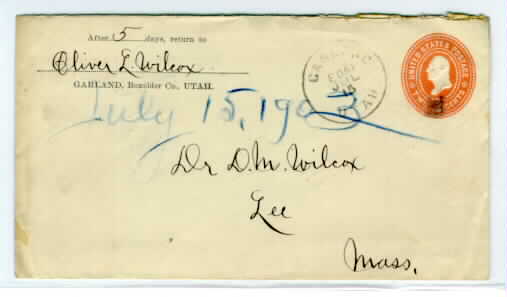 After 5 days, return to
Oliver L Wilcox
GARLAND, Boxelder Co., UTAH.
July 15, 1903
GARLAND
JUL
15
UTAH
UNITED STATES POSTAGE
Dr D. M. Wilcox
Lee
Mass.